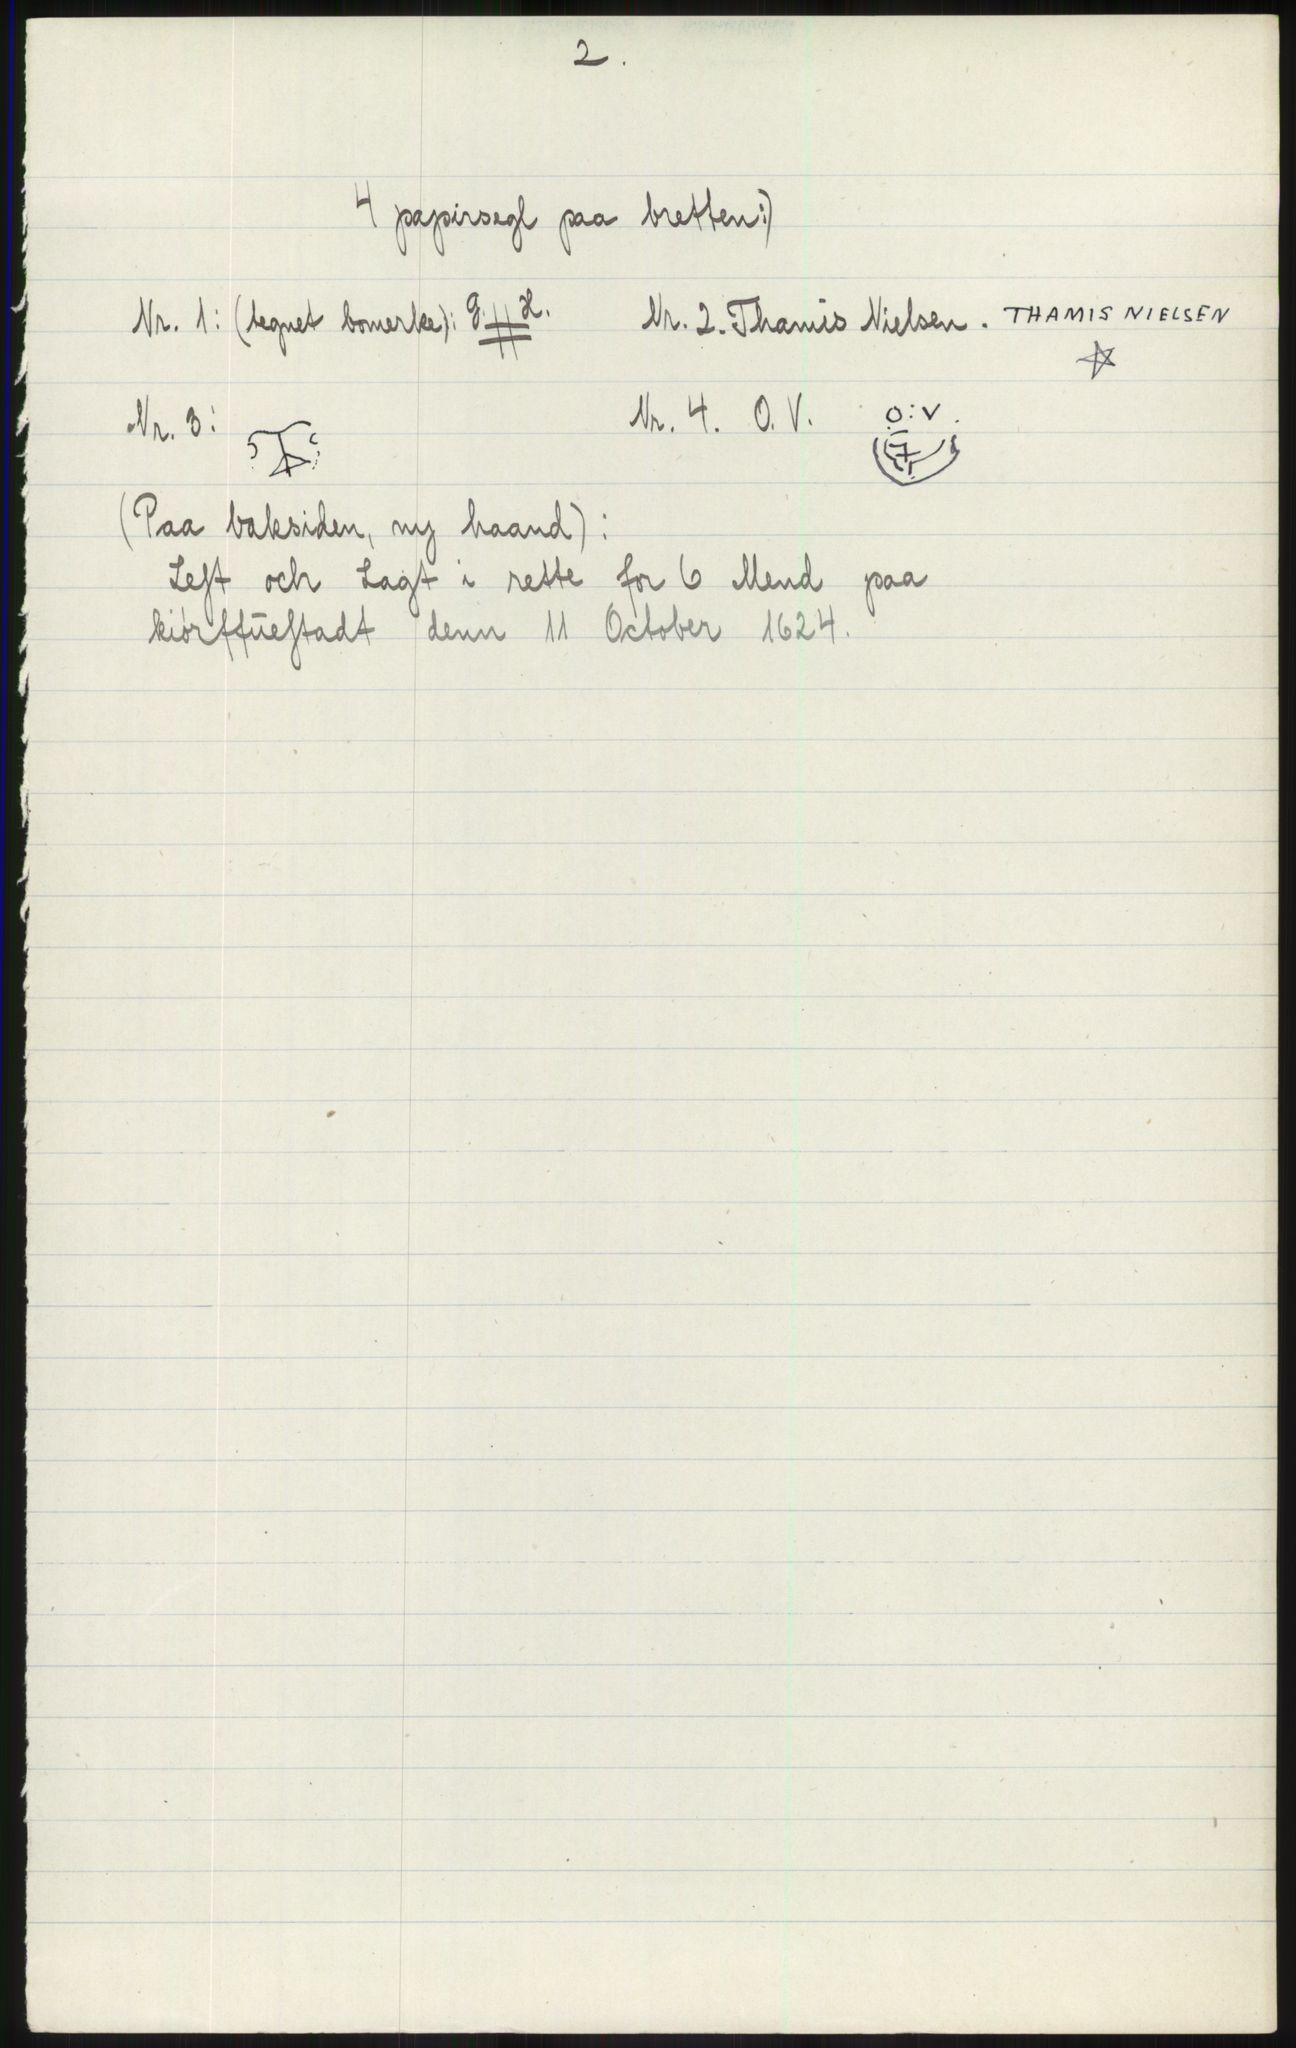 2.
4 papirsegl paa bretten:)
Nr. 1: (tegnet bomerke): G. H. Nr. 2. Thamis Nielsen. THAMIS NIELSEN
Nr. 3: Nr. 4. O. V. O:V.
(Paa baksiden, ny haand):
Lest och Lagt i rette for 6 Mend paa
kiørffuestadt denn 11 October 1624.